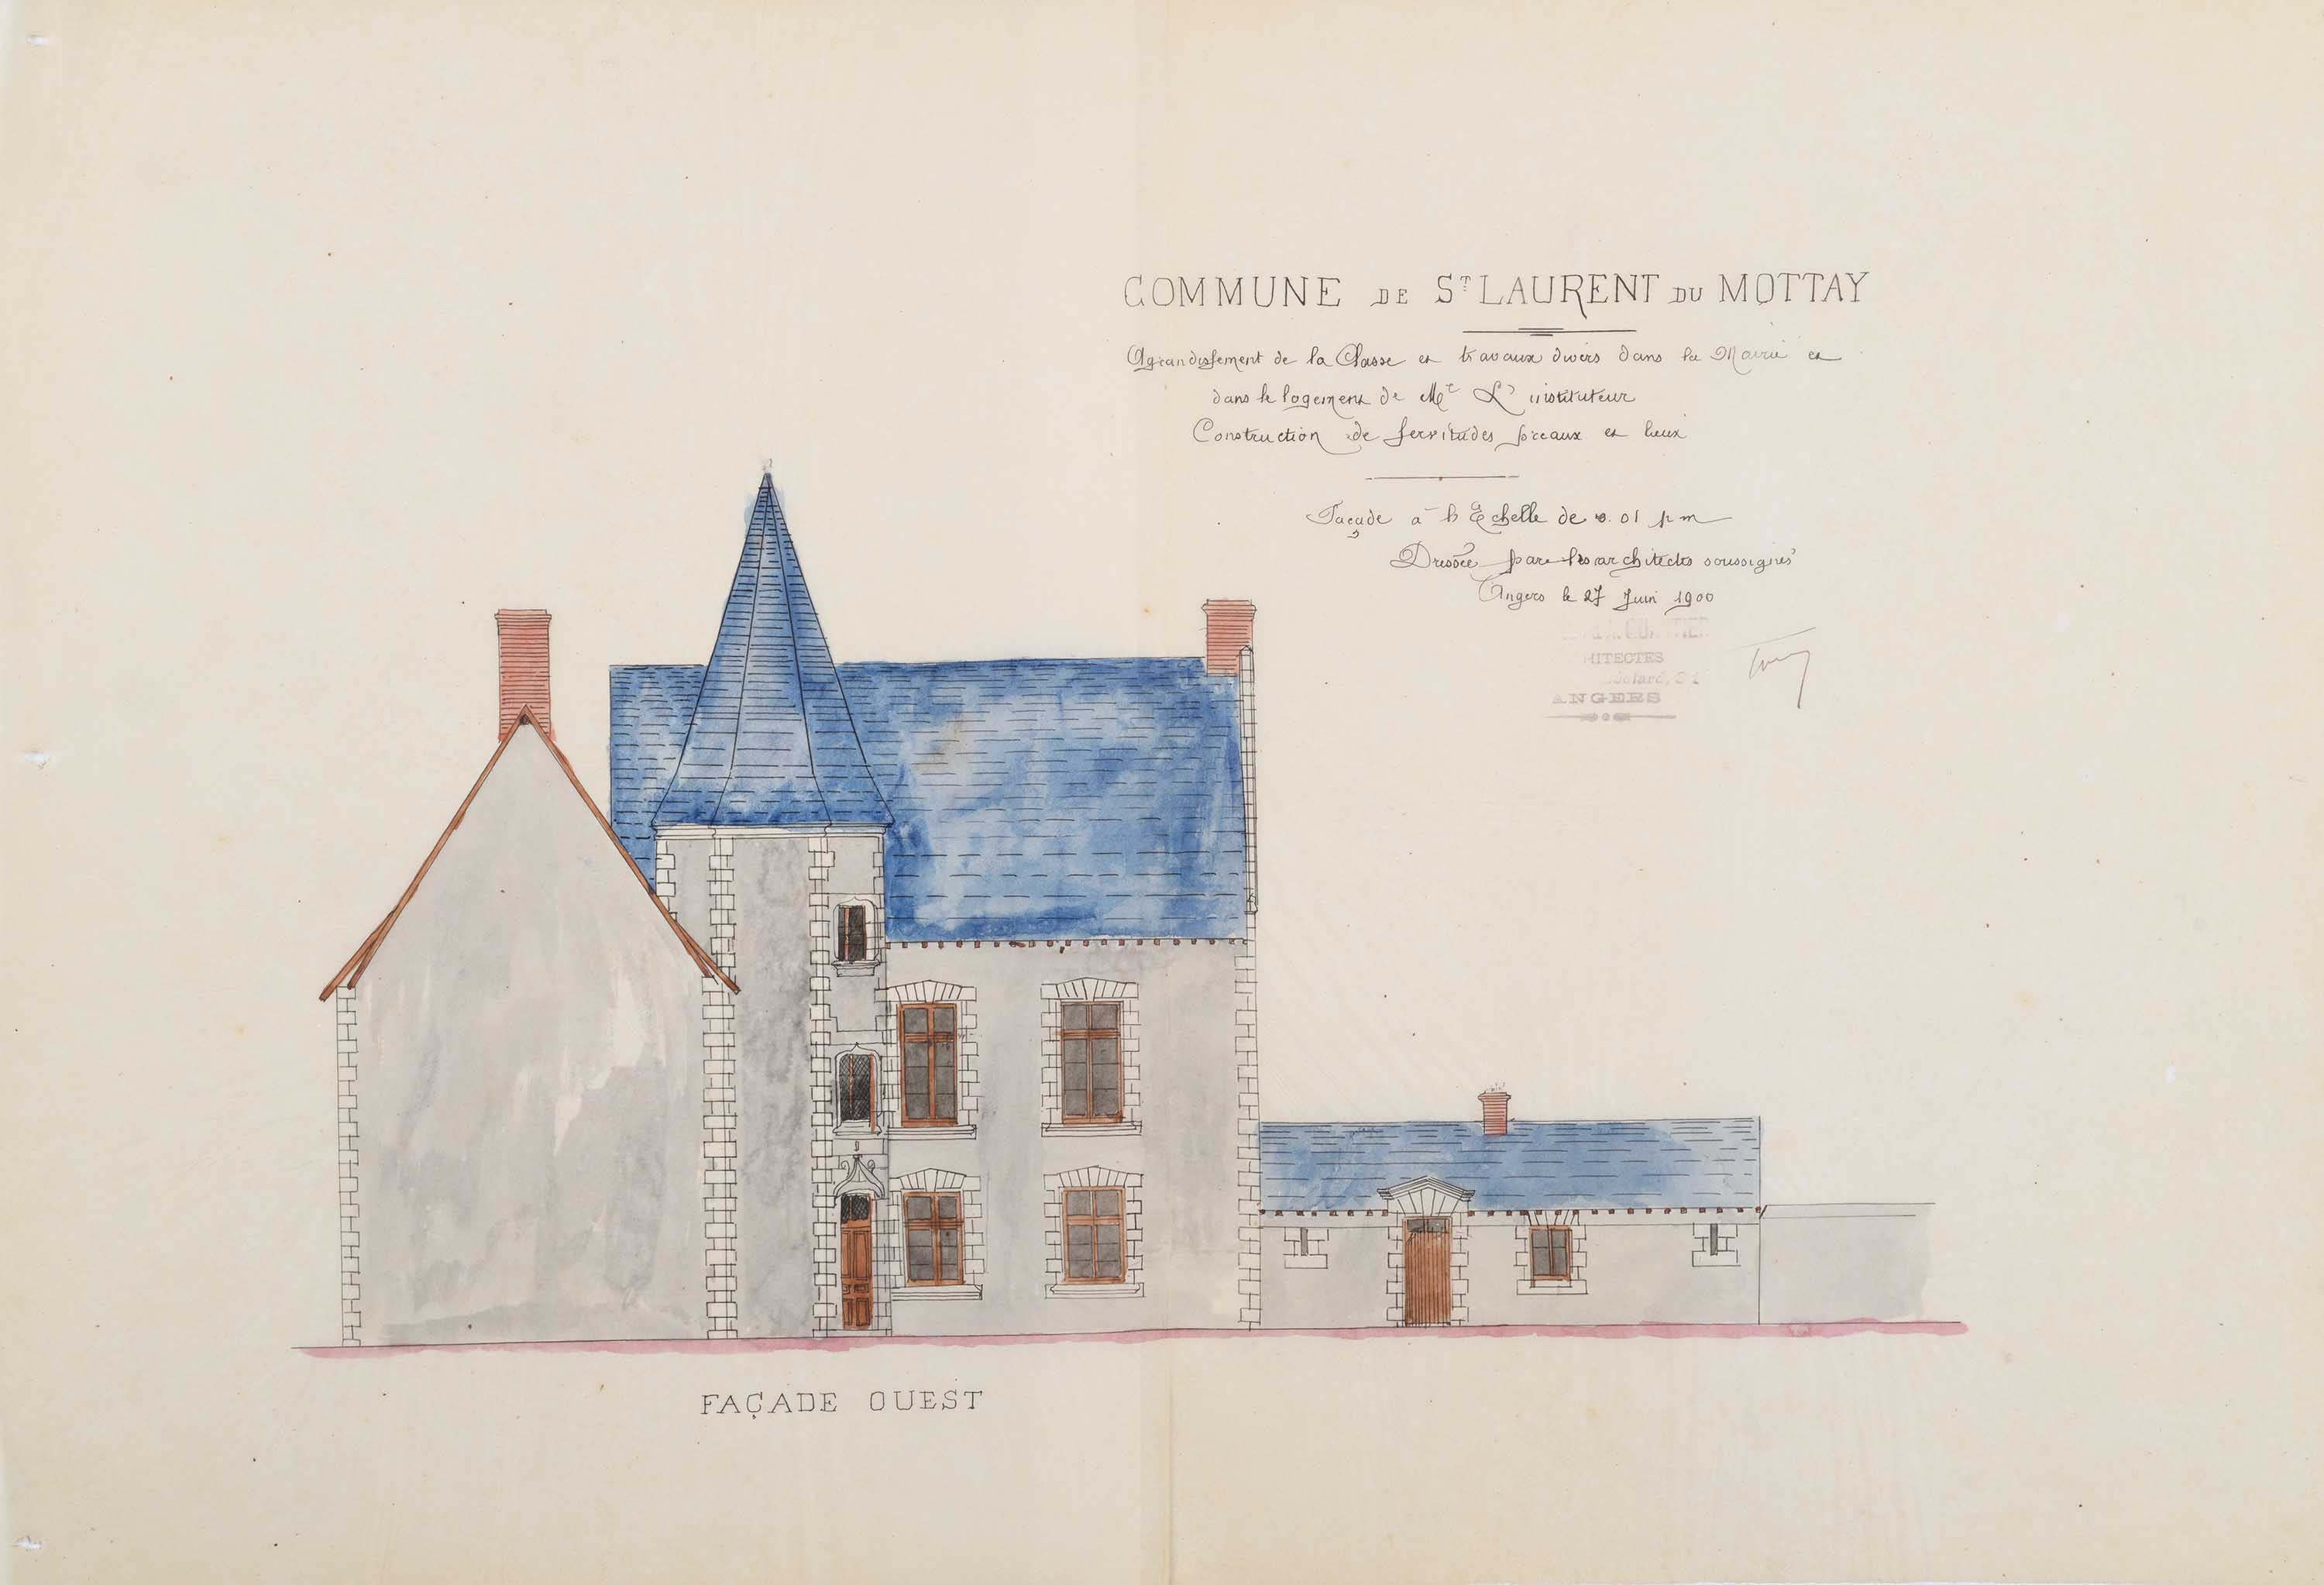 COMMUNE DE ST LAURENT DU MOTTAY
Agrandissement de la Classe et travaux divers dans la Mairie et
dans le logement de Mr L'instituteur
Construction de servitudes préaux et lieux
Façade à l'Echelle de 0.01 p m
Dressée par les architectes soussignés
Angers le 27 Juin 1900
HITECTES
ANGERS
FAÇADE OUEST